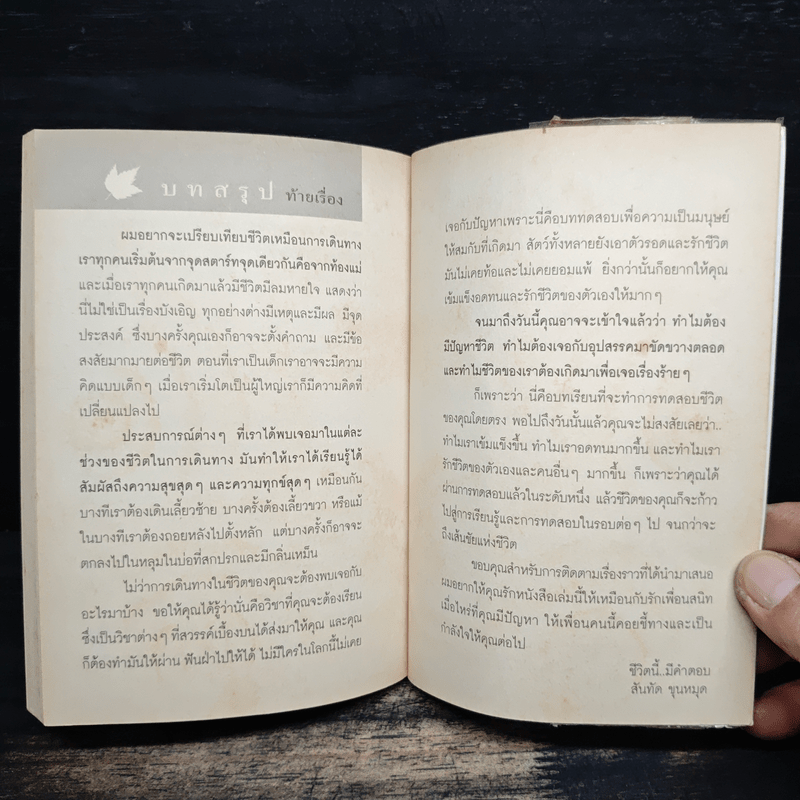 บทสรุป ท้ายเรื่อง
ผมอยากจะเปรียบเทียบชีวิตเหมือนการเดินทาง
เราทุกคนเริ่มต้นจากจุดสตาร์ทจุดเดียวกันคือจากท้องแม่
และเมื่อเราทุกคนเกิดมาแล้วมีชีวิตมีลมหายใจ แสดงว่า
นี่ไม่ใช่เป็นเรื่องบังเอิญ ทุกอย่างต่างมีเหตุและมีผล มีจุด
ประสงค์ ซึ่งบางครั้งคุณเองก็อาจจะตั้งคำถาม และมีข้อ
สงสัยมากมายต่อชีวิต ตอนที่เราเป็นเด็กเราอาจจะมีความ
คิดแบบเด็กๆ เมื่อเราเริ่มโตเป็นผู้ใหญ่เราก็มีความคิดที่
เปลี่ยนแปลงไป
ประสบการณ์ต่างๆ ที่เราได้พบเจอมาในแต่ละ
ช่วงของชีวิตในการเดินทาง มันทำให้เราได้เรียนรู้ได้
สัมผัสถึงความสุขสุดๆ และความทุกข์สุดๆ เหมือนกัน
บางทีเราต้องเดินเลี้ยวซ้าย บางครั้งต้องเลี้ยวขวา หรือแม้
ในบางทีเราต้องถอยหลังไปตั้งหลัก แต่บางครั้งก็อาจจะ
ตกลงไปในหลุมในบ่อที่สกปรกและมีกลิ่นเหม็น
ไม่ว่าการเดินทางในชีวิตของคุณจะต้องพบเจอกับ
อะไรมาบ้าง ขอให้คุณได้รู้ว่านั่นคือวิชาที่คุณจะต้องเรียน
ซึ่งเป็นวิชาต่างๆ ที่สวรรค์เบื้องบนได้ส่งมาให้คุณ และคุณ
ก็ต้องทำมันให้ผ่าน ฟันฝ่าไปให้ได้ ไม่มีใครในโลกนี้ไม่เคย
เจอกับปัญหาเพราะนี่คือบททดสอบเพื่อความเป็นมนุษย์
ให้สมกับที่เกิดมา สัตว์ทั้งหลายยังเอาตัวรอดและรักชีวิต
มันไม่เคยท้อและไม่เคยยอมแพ้ ยิ่งกว่านั้นก็อยากให้คุณ
เข้มแข็งอดทนและรักชีวิตของตัวเองให้มากๆ
จนมาถึงวันนี้คุณอาจจะเข้าใจแล้วว่า ทำไมต้อง
มีปัญหาชีวิต ทำไมต้องเจอกับอุปสรรคมาขัดขวางตลอด
และทำไมชีวิตของเราต้องเกิดมาเพื่อเจอเรื่องร้ายๆ
ก็เพราะว่า นี่คือบทเรียนที่จะทำการทดสอบชีวิต
ของคุณโดยตรง พอไปถึงวันนั้นแล้วคุณจะไม่สงสัยเลยว่า..
ทำไมเราเข้มแข็งขึ้น ทำไมเราอดทนมากขึ้น และทำไมเรา
รักชีวิตของตัวเองและคนอื่นๆ มากขึ้น ก็เพราะว่าคุณได้
ผ่านการทดสอบแล้วในระดับหนึ่ง แล้วชีวิตของคุณก็จะก้าว
ไปสู่การเรียนรู้และการทดสอบในรอบต่อๆ ไป จนกว่าจะ
ถึงเส้นชัยแห่งชีวิต
ขอบคุณสำหรับการติดตามเรื่องราวที่ได้นำมาเสนอ
ผมอยากให้คุณรักหนังสือเล่มนี้ให้เหมือนกับรักเพื่อนสนิท
เมื่อไหร่ที่คุณมีปัญหา ให้เพื่อนคนนี้คอยชี้ทางและเป็น
กำลังใจให้คุณต่อไป
ชีวิตนี้..มีคำตอบ
สันทัด ขุนหมุด